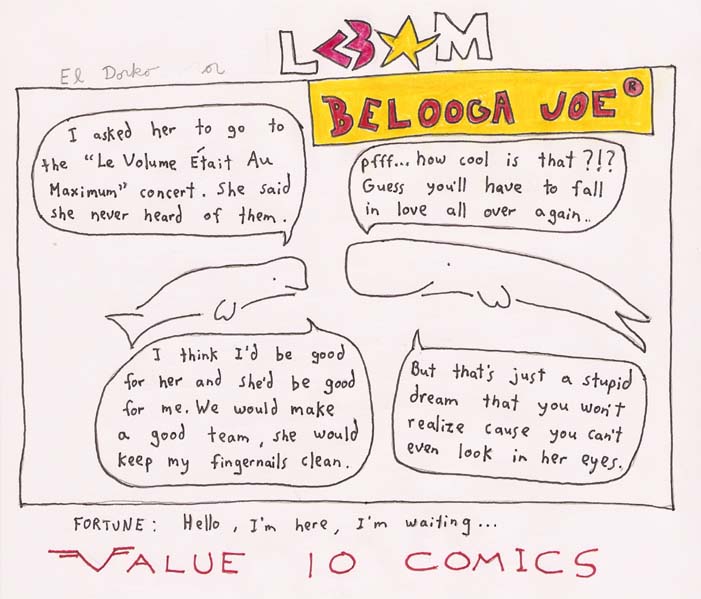 L<3★M
El Dorko or
BELOOGA JOE®
I asked her to go to
the "Le Volume Était Au
Maximum" concert. She said
she never heard of them.
pfff... how cool is that ?!?
Guess you'll have to fall
in love all over again..
I think I'd be good
for her and she'd be good
for me. We would make
a good team, she would
keep my fingernails clean.
But that's just a stupid
dream that you won't
realize cause you can't
even look in her eyes.
FORTUNE: Hello, I'm here, I'm waiting...
VALUE 10 COMICS